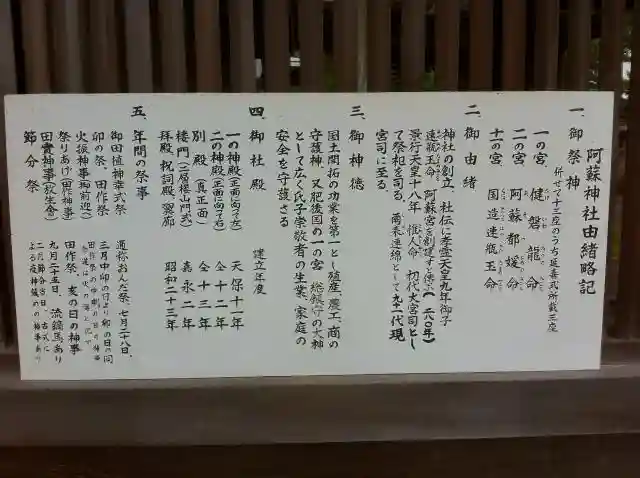 阿蘇神社由緒略記
一、御祭神
併せて十三座のうち延喜式所載三座
一の宮、健磐龍命
二の宮、阿蘇都媛命
十一の宮、国造速瓶玉命
二、御由緒
神社の創立、社伝に孝霊天皇九年御子
速瓶玉命、阿蘇宮を創建すと傳ふ(二八〇年)
景行天皇十八年 惟人命 初代大宮司とし
て祭祀を司る。爾来連綿として九十一代現
宮司に至る。
三、御神徳
国土開拓の功業を第一とし殖産、農工、商の
守護神、又肥後国の一の宮 総鎮守の大神
として広く氏子崇敬者の生業、家庭の
安全を守護さる
四、御社殿 建立年度
一の神殿(正面に向って左) 天保十一年
二の神殿(正面に向って右) 仝十二年
別殿(真正面) 仝十三年
楼門(二層楼山門式) 嘉永二年
拝殿、祝詞殿、翼廊 昭和二十三年
五、年間の祭事
御田植神幸式祭 通称おんだ祭、七月二十八日、
卯の祭、田作祭 三月中卯の日より卯の日の間
火振神事(御前迎)
祭りあげ(田作神事) 田作祭、亥の日の神事
田實神事(放生会) 九月二十五日、流鏑馬あり
節分祭 二月節分当日、古式に
よる神餞のの神事あり